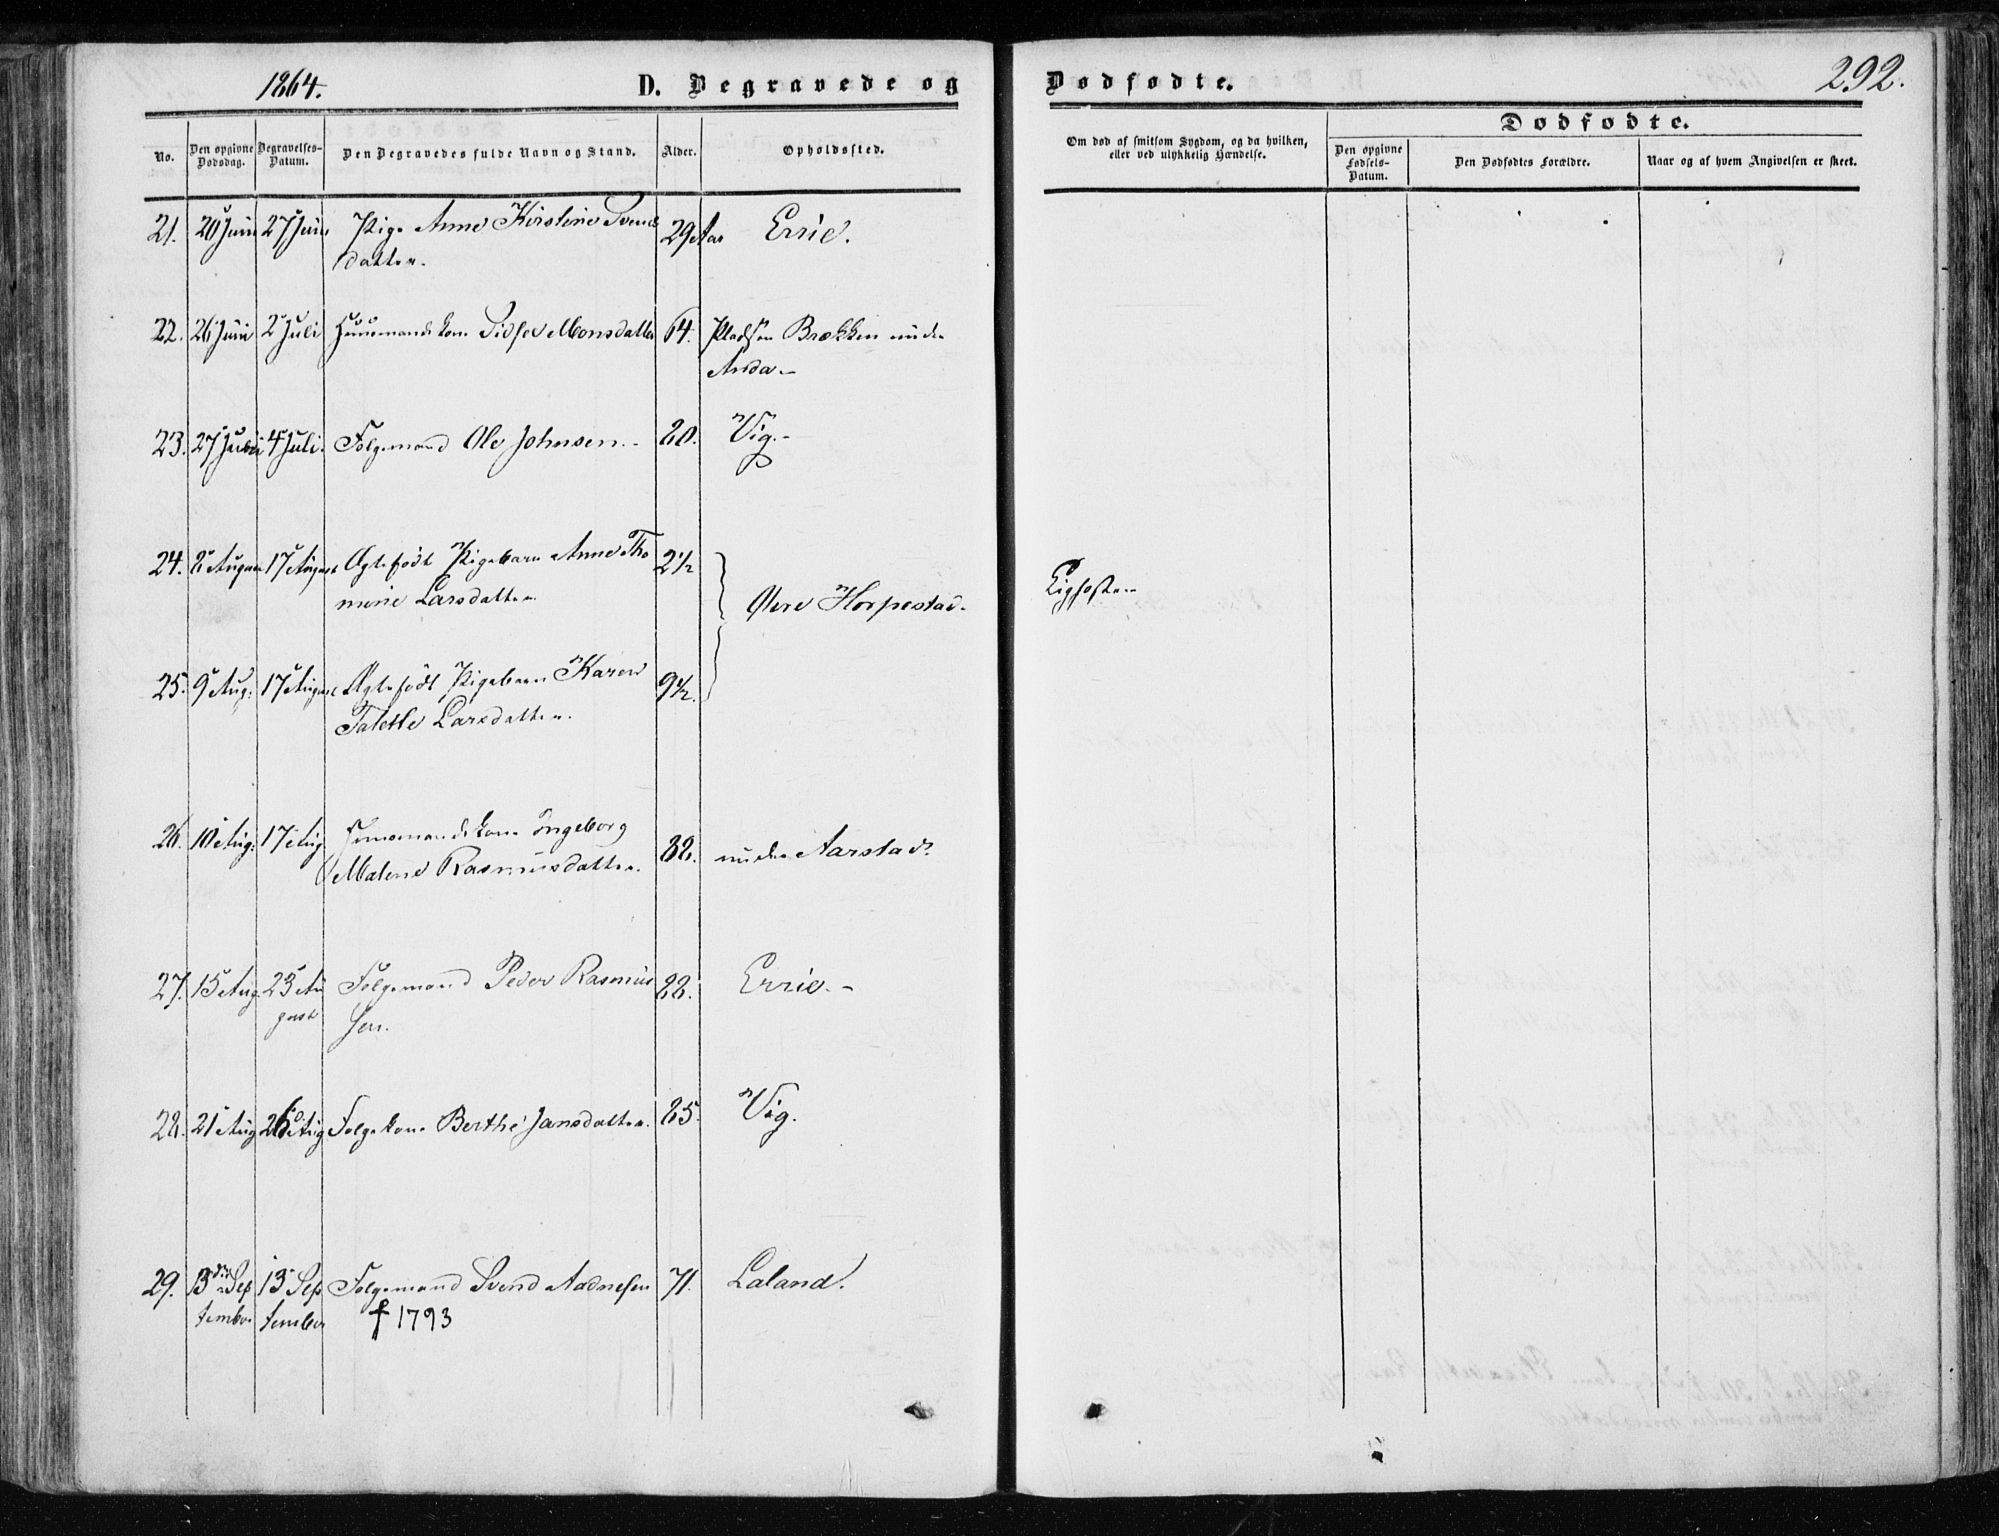 1864.
D. Begravede og
Dødfødte.
292.
No.
Den opgivne Dødsdag.
Begravelses-Datum.
Den Begravedes fulde Navn og Stand.
Alder.
Opholdssted.
Om død af smitsom Sygdom, og da hvilken,
eller ved ulykkelig Hændelse.
Dødfødte.
Den opgivne Fødsels-Datum.
Den Dødfødtes Forældre.
Naar og af hvem Angivelsen er skeet.
21. 20 Juni 27 Juni Pige Anne Kirstine Svends 29 Aar Errie.
datter.
22. 26 Juni 2 Juli Huusmandskone Sidsel Monsdatter 64. Pladsen Brækken under
Anda.-
23. 27 4 Juli. Folgemand Ole Johnsen.- 80. Vig.-
24. 8 August 17 August Ægtefødt Pigebarn Anne Tho 2 1/2
mine Larsdatter
Øvre Horpestad.
Kighoste.-
25. 9 Aug: 17 August Ægtefødt Pigebarn Karen 9 1/2.
Talette Larsdatter.
26. 10 Aug: 17 Aug Huusmandskone Ingeborg
Malene Rasmusdatter. 38. under Aarstad.
27. 15 Aug. 23 Au Folgemand Peder Rasmus 88. Errie.-
gust sen.
28. 21 Aug 26 Aug Folgekone Berthe Jansdatter. 85. Vig.
29. 3die Sep 13 Sep Folgemand Svend Aadnesen 71. Laland.
tember tember † 1793